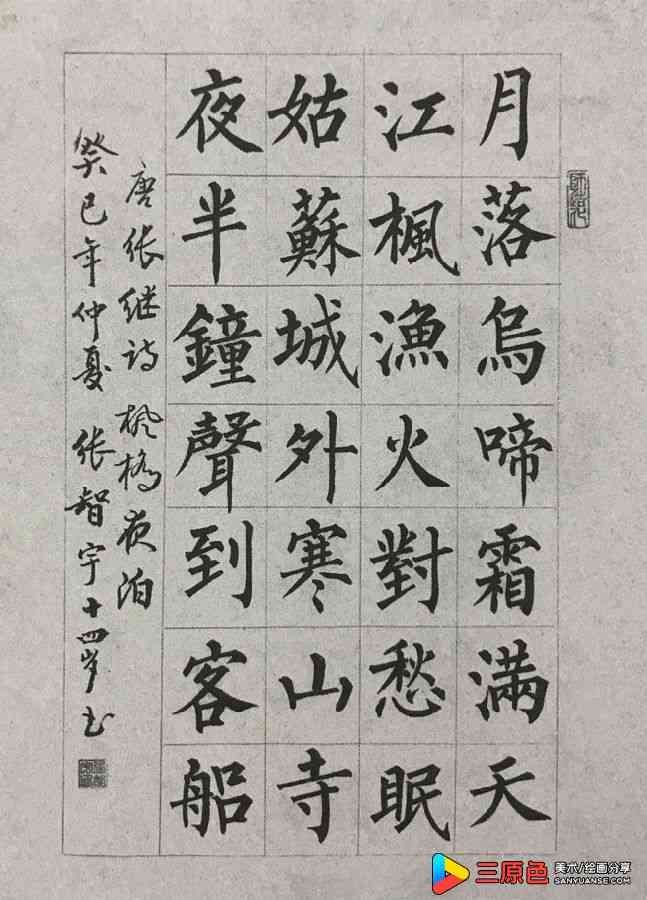 月落烏啼霜滿天
江楓漁火對愁眠
姑蘇城外寒山寺
夜半鐘聲到客船
唐张继诗枫桥夜泊
癸巳年仲夏张智宇十四岁书
三原色
美术/绘画分享
SANYUANSE.COM